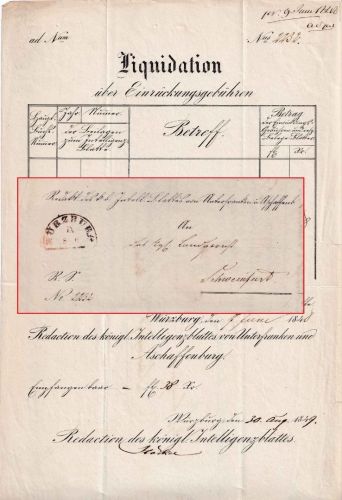 pr. 9 Juni 1848
ad. Num Nus 2232.
Liquidation
über Einrückungsgebühren
Haupt-
Buchs
Numer
Jahr Numer
der Beilagen
zum Intelligenz-
Blatte
Betreff.
Betrag
der Einrückungs-
fl. Xr.
Redakt. des k. b. Intell. Blattes von Unterfranken u. Aschaffenb.
WÜRZBURG
An
das kgl. Landgericht
Schweinfurt
R. S.
No. 2232
Würzburg, den 7 Juni 1848
Redaction des königl. Intelligenzblattes von Unterfranken und
Aschaffenburg.
Empfangen baar — fl. 38 Xr.
Würzburg den 30. Aug. 1849.
Redaction des königl. Intelligenzblattes.